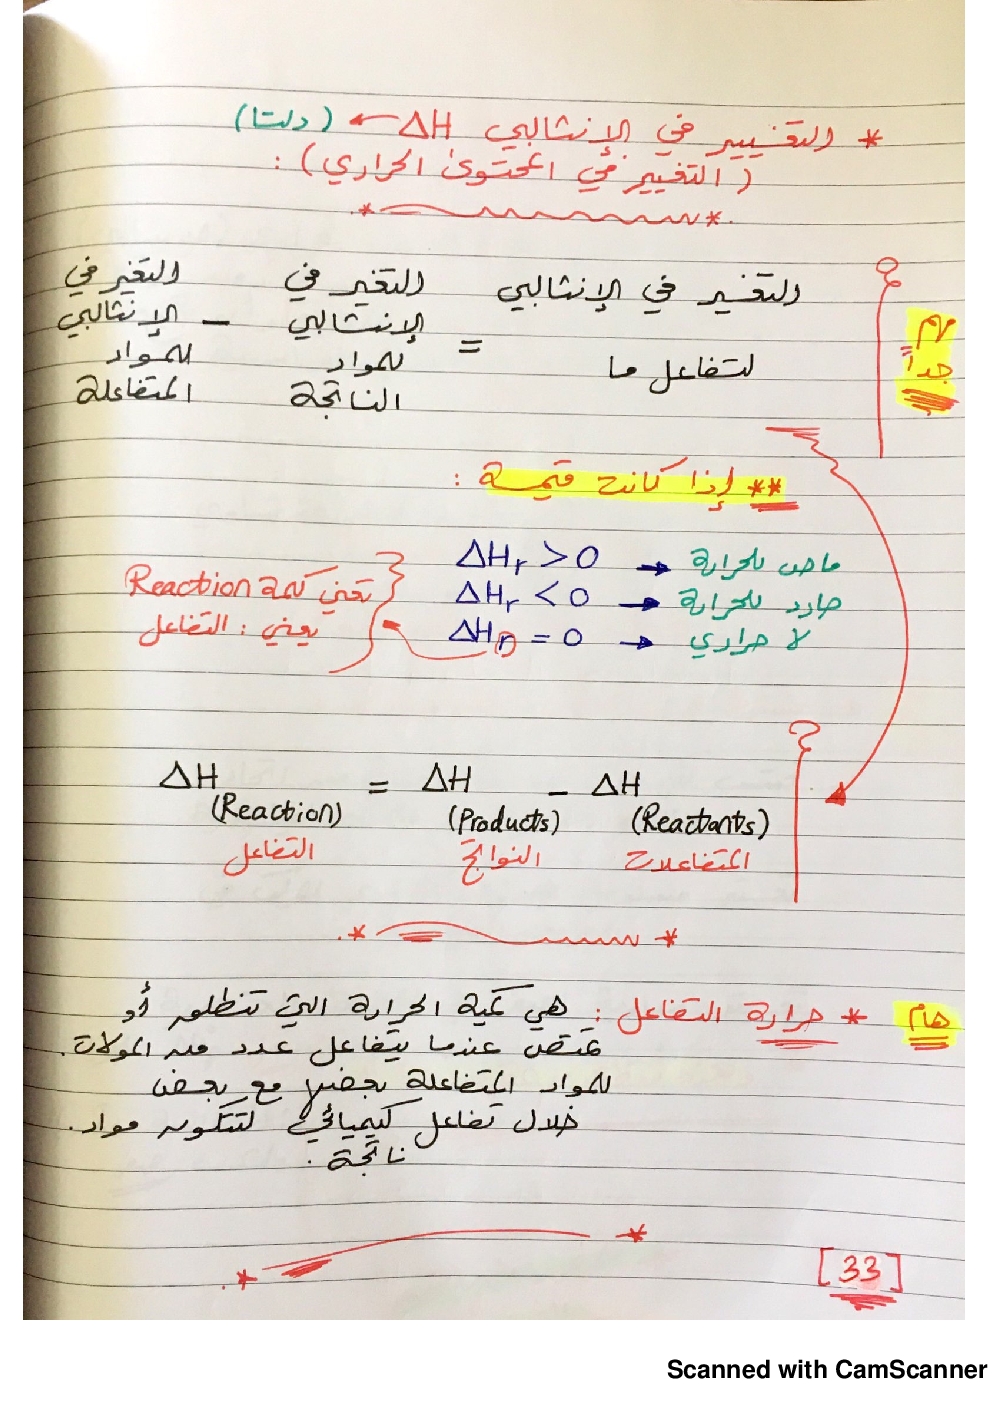 * التغيير في الإنثالبي ΔH ← (دلتا)
(التغيير في المحتوى الحراري) :
مهم جداً
التغير في الإنثالبي لتفاعل ما = التغير في الإنثالبي للمواد الناتجة - التغير في الإنثالبي للمواد المتفاعلة
** إذا كانت قيمة :
ΔHr > 0 → ماص للحرارة
ΔHr < 0 → طارد للحرارة
ΔHr = 0 → لا حراري
تعني كلمة Reaction
يعني : التفاعل
ΔH = ΔH - ΔH
(Reaction) (Products) (Reactants)
التفاعل النواتج المتفاعلات
هام * حرارة التفاعل : هي كمية الحرارة التي تنطلق أو
تمتص عندما يتفاعل عدد من المولات.
للمواد المتفاعلة بعضها مع بعض
خلال تفاعل كيميائي لتتكون مواد.
ناتجة.
[33]
Scanned with CamScanner